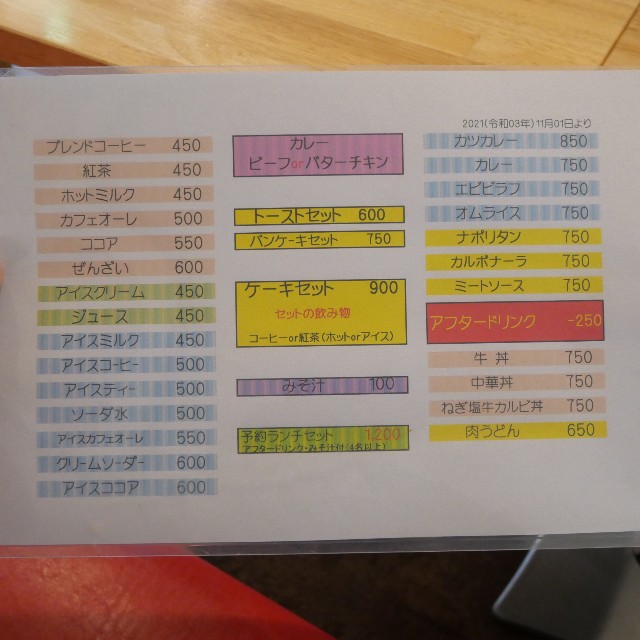 2021(令和03年)11月01日より
ブレンドコーヒー 450
紅茶 450
ホットミルク 450
カフェオーレ 500
ココア 550
ぜんざい 600
アイスクリーム 450
ジュース 450
アイスミルク 450
アイスコーヒー 500
アイスティー 500
ソーダ水 500
アイスカフェオーレ 550
クリームソーダー 600
アイスココア 600
カレー
ビーフorバターチキン
トーストセット 600
パンケーキセット 750
ケーキセット 900
セットの飲み物
コーヒーor紅茶(ホットorアイス)
みそ汁 100
予約ランチセット 1200
アフタードリンク・みそ汁付(4名以上)
カツカレー 850
カレー 750
エビピラフ 750
オムライス 750
ナポリタン 750
カルボナーラ 750
ミートソース 750
アフタードリンク -250
牛丼 750
中華丼 750
ねぎ塩牛カルビ丼 750
肉うどん 650